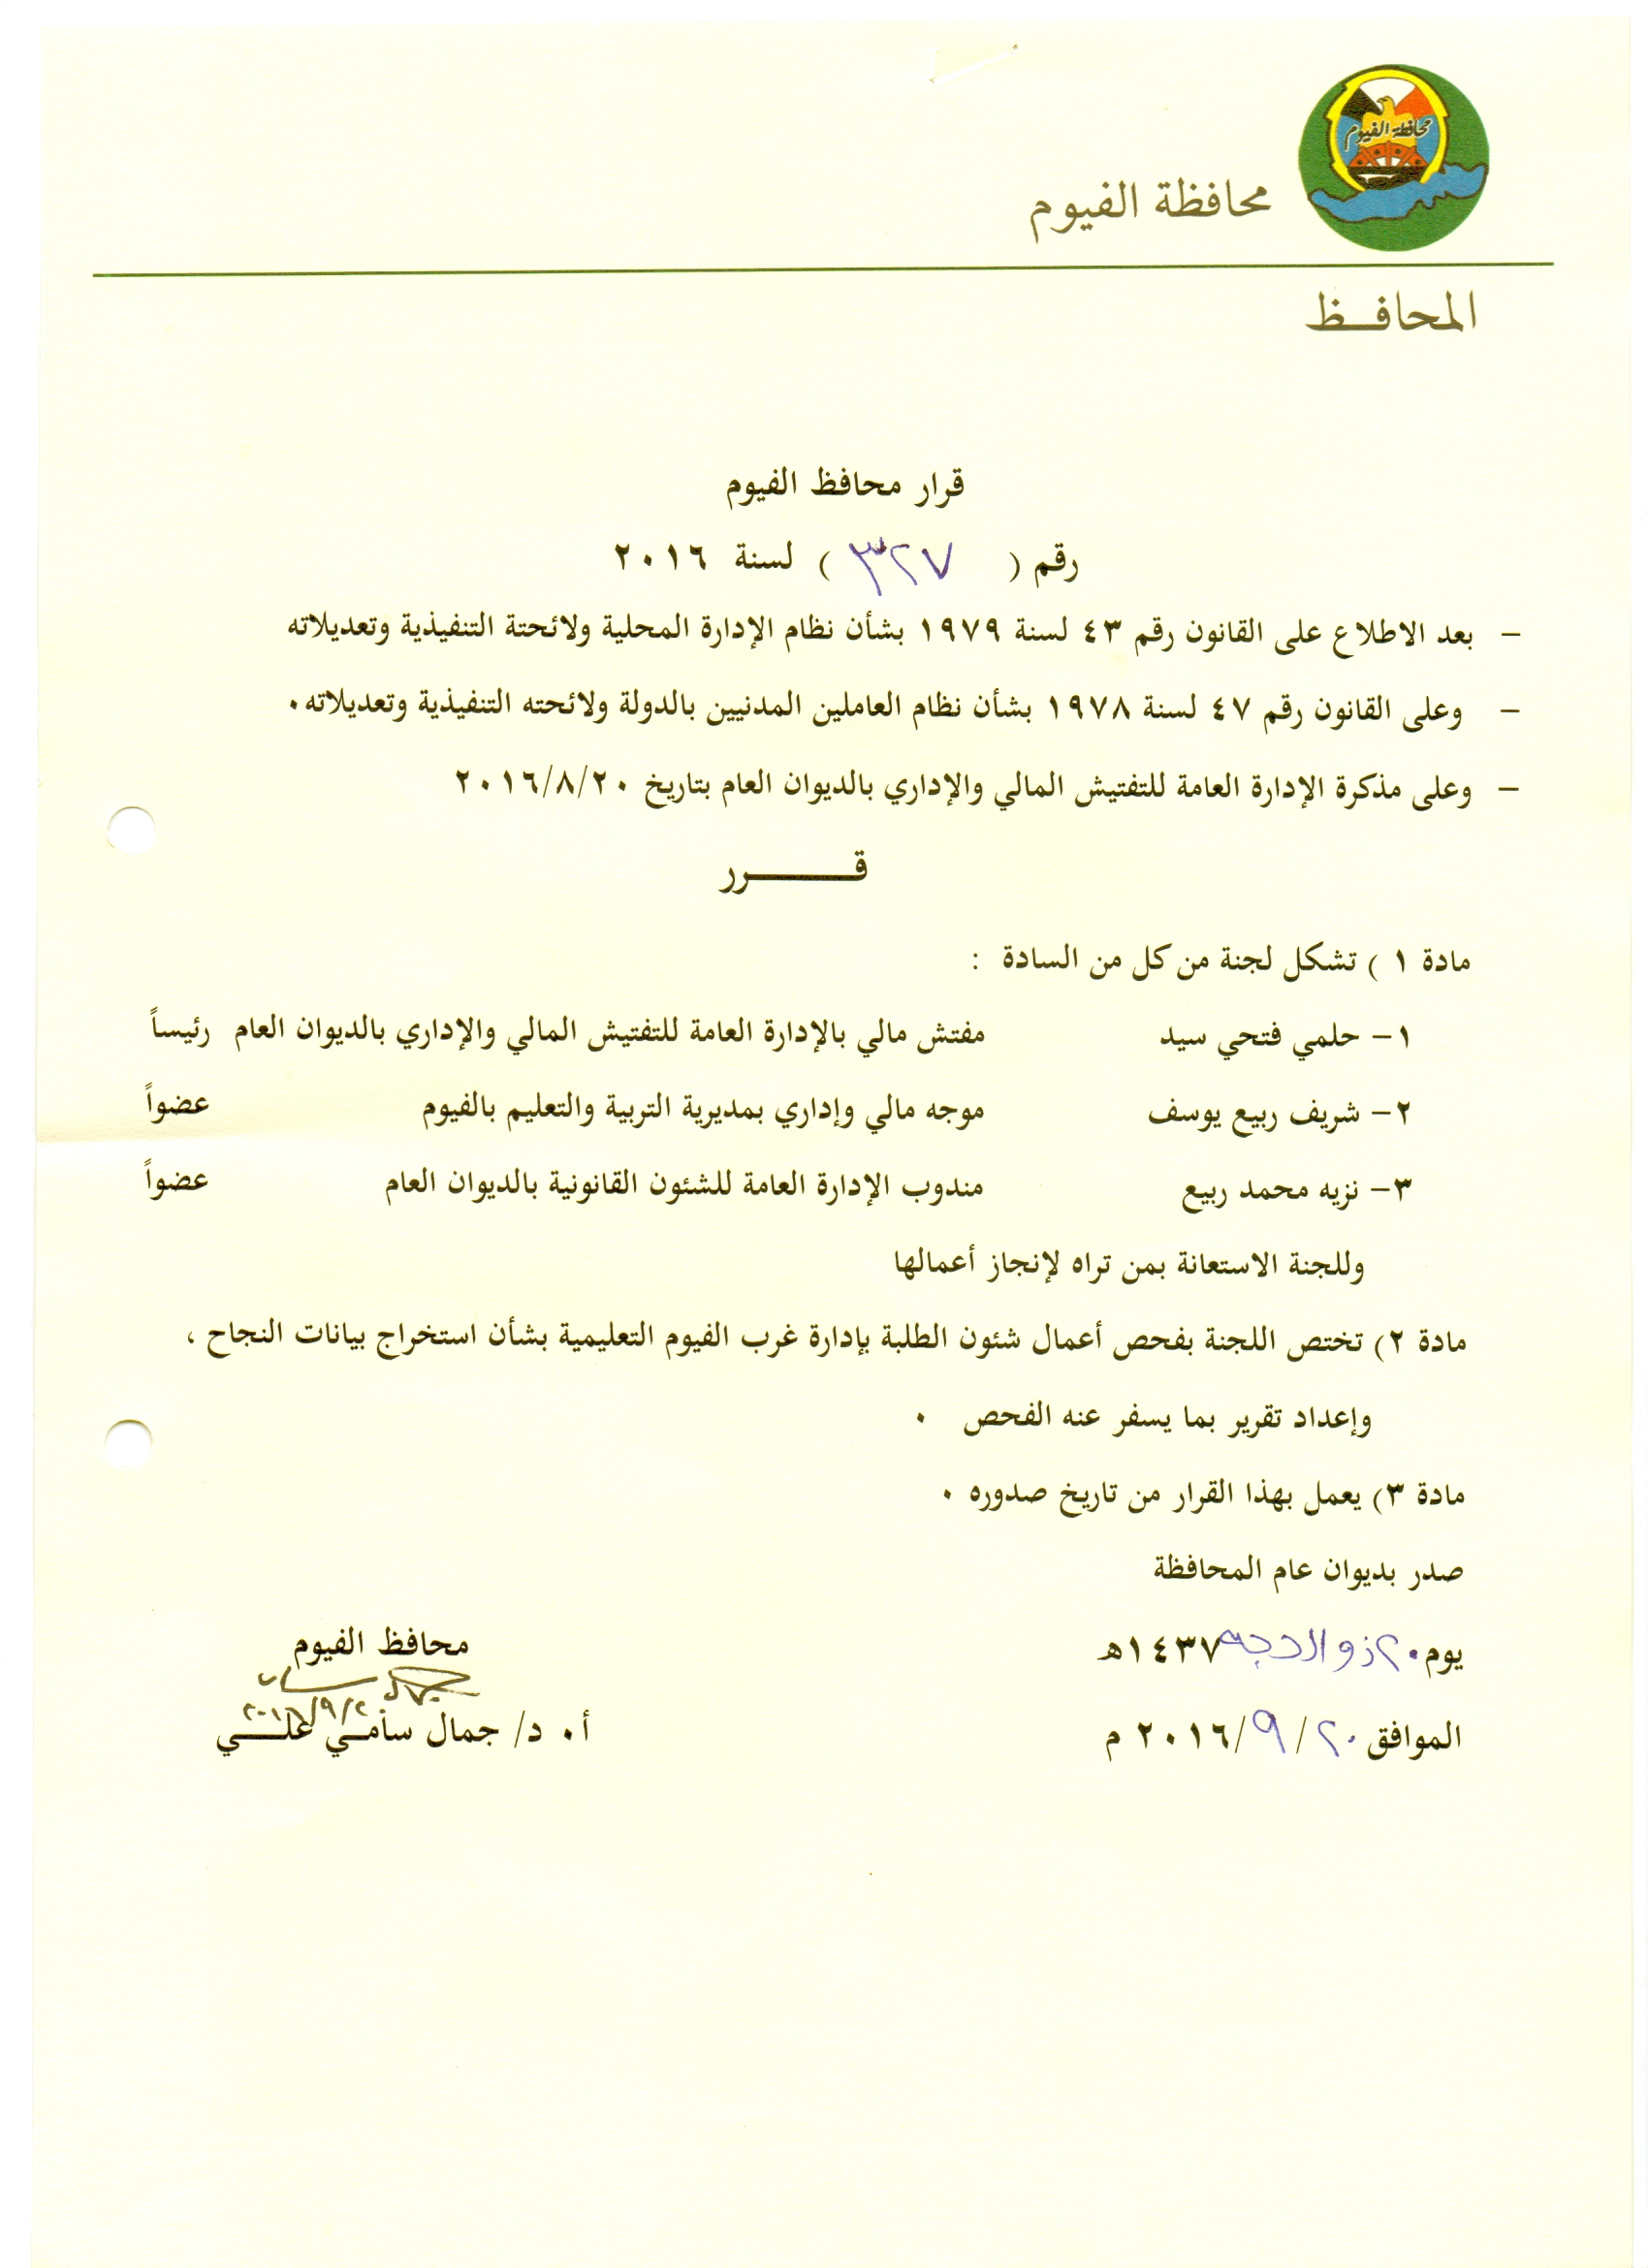 محافظة الفيوم
محافظة الفيوم
المحافـــظ
قرار محافظ الفيوم
رقم ( ٣٢٧ ) لسنة ٢٠١٦
– بعد الاطلاع على القانون رقم ٤٣ لسنة ١٩٧٩ بشأن نظام الإدارة المحلية ولائحتة التنفيذية وتعديلاته
– وعلى القانون رقم ٤٧ لسنة ١٩٧٨ بشأن نظام العاملين المدنيين بالدولة ولائحته التنفيذية وتعديلاته٠
– وعلى مذكرة الإدارة العامة للتفتيش المالي والإداري بالديوان العام بتاريخ ٢٠١٦/٨/٢٠
قـــــــــرر
مادة ١ ) تشكل لجنة من كل من السادة :
١– حلمي فتحي سيد مفتش مالي بالإدارة العامة للتفتيش المالي والإداري بالديوان العام رئيساً
٢– شريف ربيع يوسف موجه مالي وإداري بمديرية التربية والتعليم بالفيوم عضواً
٣– نزيه محمد ربيع مندوب الإدارة العامة للشئون القانونية بالديوان العام عضواً
وللجنة الاستعانة بمن تراه لإنجاز أعمالها
مادة ٢) تختص اللجنة بفحص أعمال شئون الطلبة بإدارة غرب الفيوم التعليمية بشأن استخراج بيانات النجاح ،
وإعداد تقرير بما يسفر عنه الفحص ٠
مادة ٣) يعمل بهذا القرار من تاريخ صدوره ٠
صدر بديوان عام المحافظة
يوم ٢٠ ذو الحجه ١٤٣٧هـ
الموافق ٢٠ / ٩ /٢٠١٦ م
محافظ الفيوم
٢٠١٦/٩/٢٠
أ٠ د/ جمال سامـي علـــي